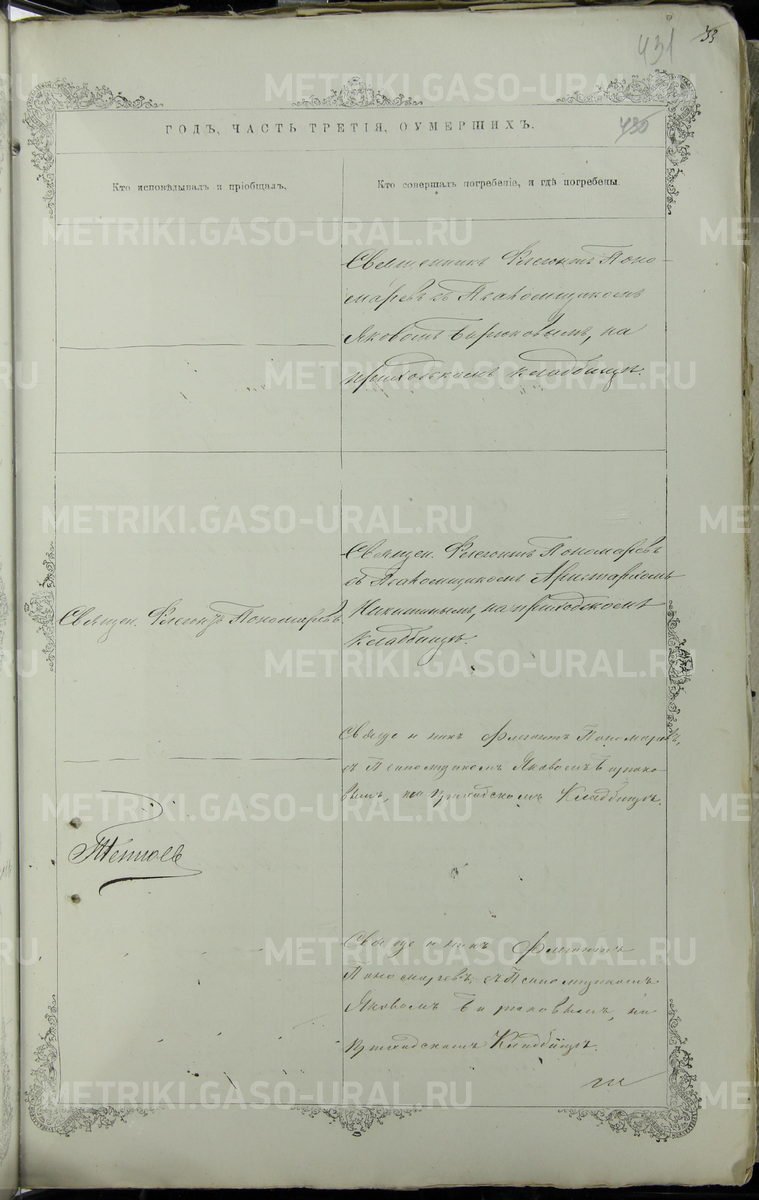 431
33
METRIKI.GASO-URAL.RU
ГОДЪ, ЧАСТЬ ТРЕТІЯ, ОУМЕРШИХЪ.
430
Кто исповѣдывалъ и пріобщалъ.
Кто совершалъ погребеніе, и гдѣ погребены
METRIKI.GASO-URAL.RU
Священникъ Флегонтъ Поно-
маревъ съ Псаломщикомъ
Яковомъ Бирюковымъ, на
приходскомъ кладбищѣ.
METRIKI.GASO-URAL.RU
Священ. Флегонтъ Пономаревъ
съ Псаломщикомъ Аристархомъ
Священ. Флегонтъ Пономаревъ
Никитинымъ, на приходскомъ
кладбищѣ.
METRIKI.GASO-URAL.RU
Священникъ Флегонтъ Пономаревъ,
съ Псаломщикомъ Яковомъ Бирюко-
вымъ, на приходскомъ Кладбищѣ.
METRIKI.GASO-URAL.RU
Священникъ Флегонтъ
Пономаревъ, съ Псаломщикомъ
Яковомъ Бирюковымъ, на
приходскомъ Кладбищѣ.
METRIKI.GASO-URAL.RU